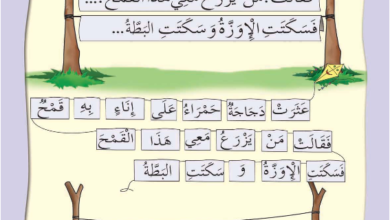 فَقَالَتْ: مَنْ يَزْرَعُ مَعِي هَذَا القَمْحَ؟....
فَسَكَتَتِ الْإِوَزَّةُ وَ سَكَتَتِ البَطَّةُ...
عَثَرَتْ دَجَاجَةٌ حَمْرَاءُ عَلَى إِنَاءٍ بِهِ قَمْحٌ
فَقَالَتْ مَنْ يَزْرَعُ مَعِي هَذَا القَمْحَ
فَسَكَتَتِ الْإِوَزَّةُ وَ سَكَتَتِ البَطَّةُ